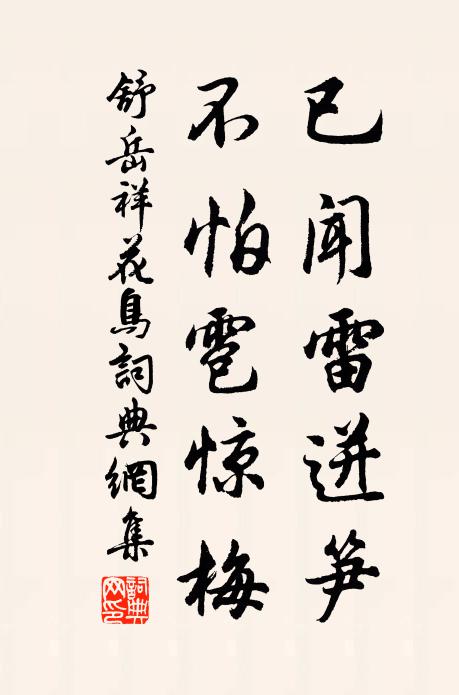 已闻雷迸笋
不怕雹惊梅
舒岳祥花鳥詞典網集
詞典
网印